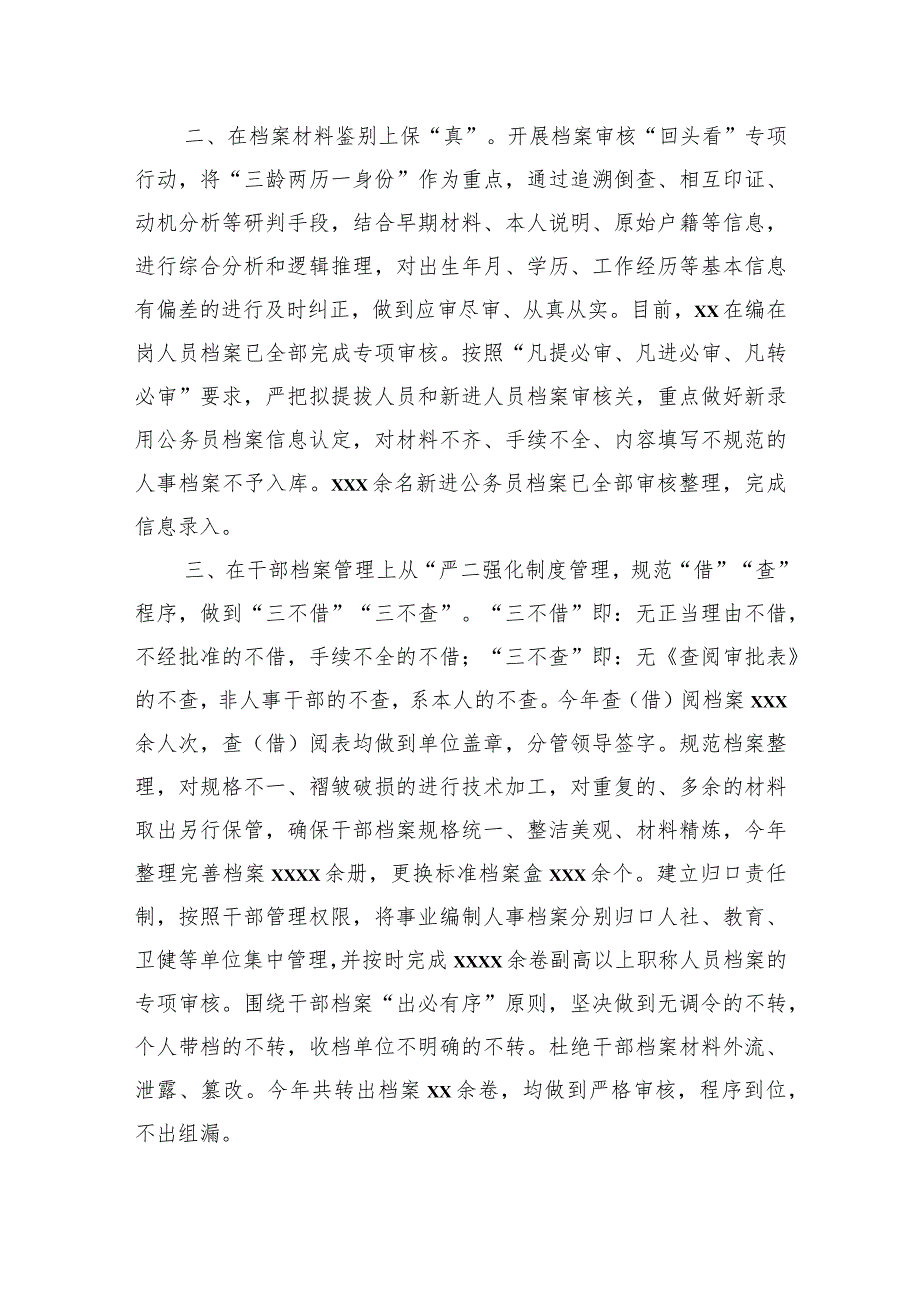 二、在档案材料鉴别上保“真”。开展档案审核“回头看”专项
行动，将“三龄两历一身份”作为重点，通过追溯倒查、相互印证、
动机分析等研判手段，结合早期材料、本人说明、原始户籍等信息，
进行综合分析和逻辑推理，对出生年月、学历、工作经历等基本信息
有偏差的进行及时纠正，做到应审尽审、从真从实。目前，xx在编在
岗人员档案已全部完成专项审核。按照“凡提必审、凡进必审、凡转
必审”要求，严把拟提拔人员和新进人员档案审核关，重点做好新录
用公务员档案信息认定，对材料不齐、手续不全、内容填写不规范的
人事档案不予入库。xxx余名新进公务员档案已全部审核整理，完成
信息录入。
三、在干部档案管理上从“严二强化制度管理，规范“借”“查”
程序，做到“三不借”“三不查”。“三不借”即：无正当理由不借，
不经批准的不借，手续不全的不借；“三不查”即：无《查阅审批表》
的不查，非人事干部的不查，系本人的不查。今年查（借）阅档案xxx
余人次，查（借）阅表均做到单位盖章，分管领导签字。规范档案整
理，对规格不一、褶皱破损的进行技术加工，对重复的、多余的材料
取出另行保管，确保干部档案规格统一、整洁美观、材料精炼，今年
整理完善档案xxxx余册，更换标准档案盒xxx余个。建立归口责任
制，按照干部管理权限，将事业编制人事档案分别归口人社、教育、
卫健等单位集中管理，并按时完成xxxx余卷副高以上职称人员档案的
专项审核。围绕干部档案“出必有序”原则，坚决做到无调令的不转，
个人带档的不转，收档单位不明确的不转。杜绝干部档案材料外流、
泄露、篡改。今年共转出档案xx余卷，均做到严格审核，程序到位，
不出组漏。